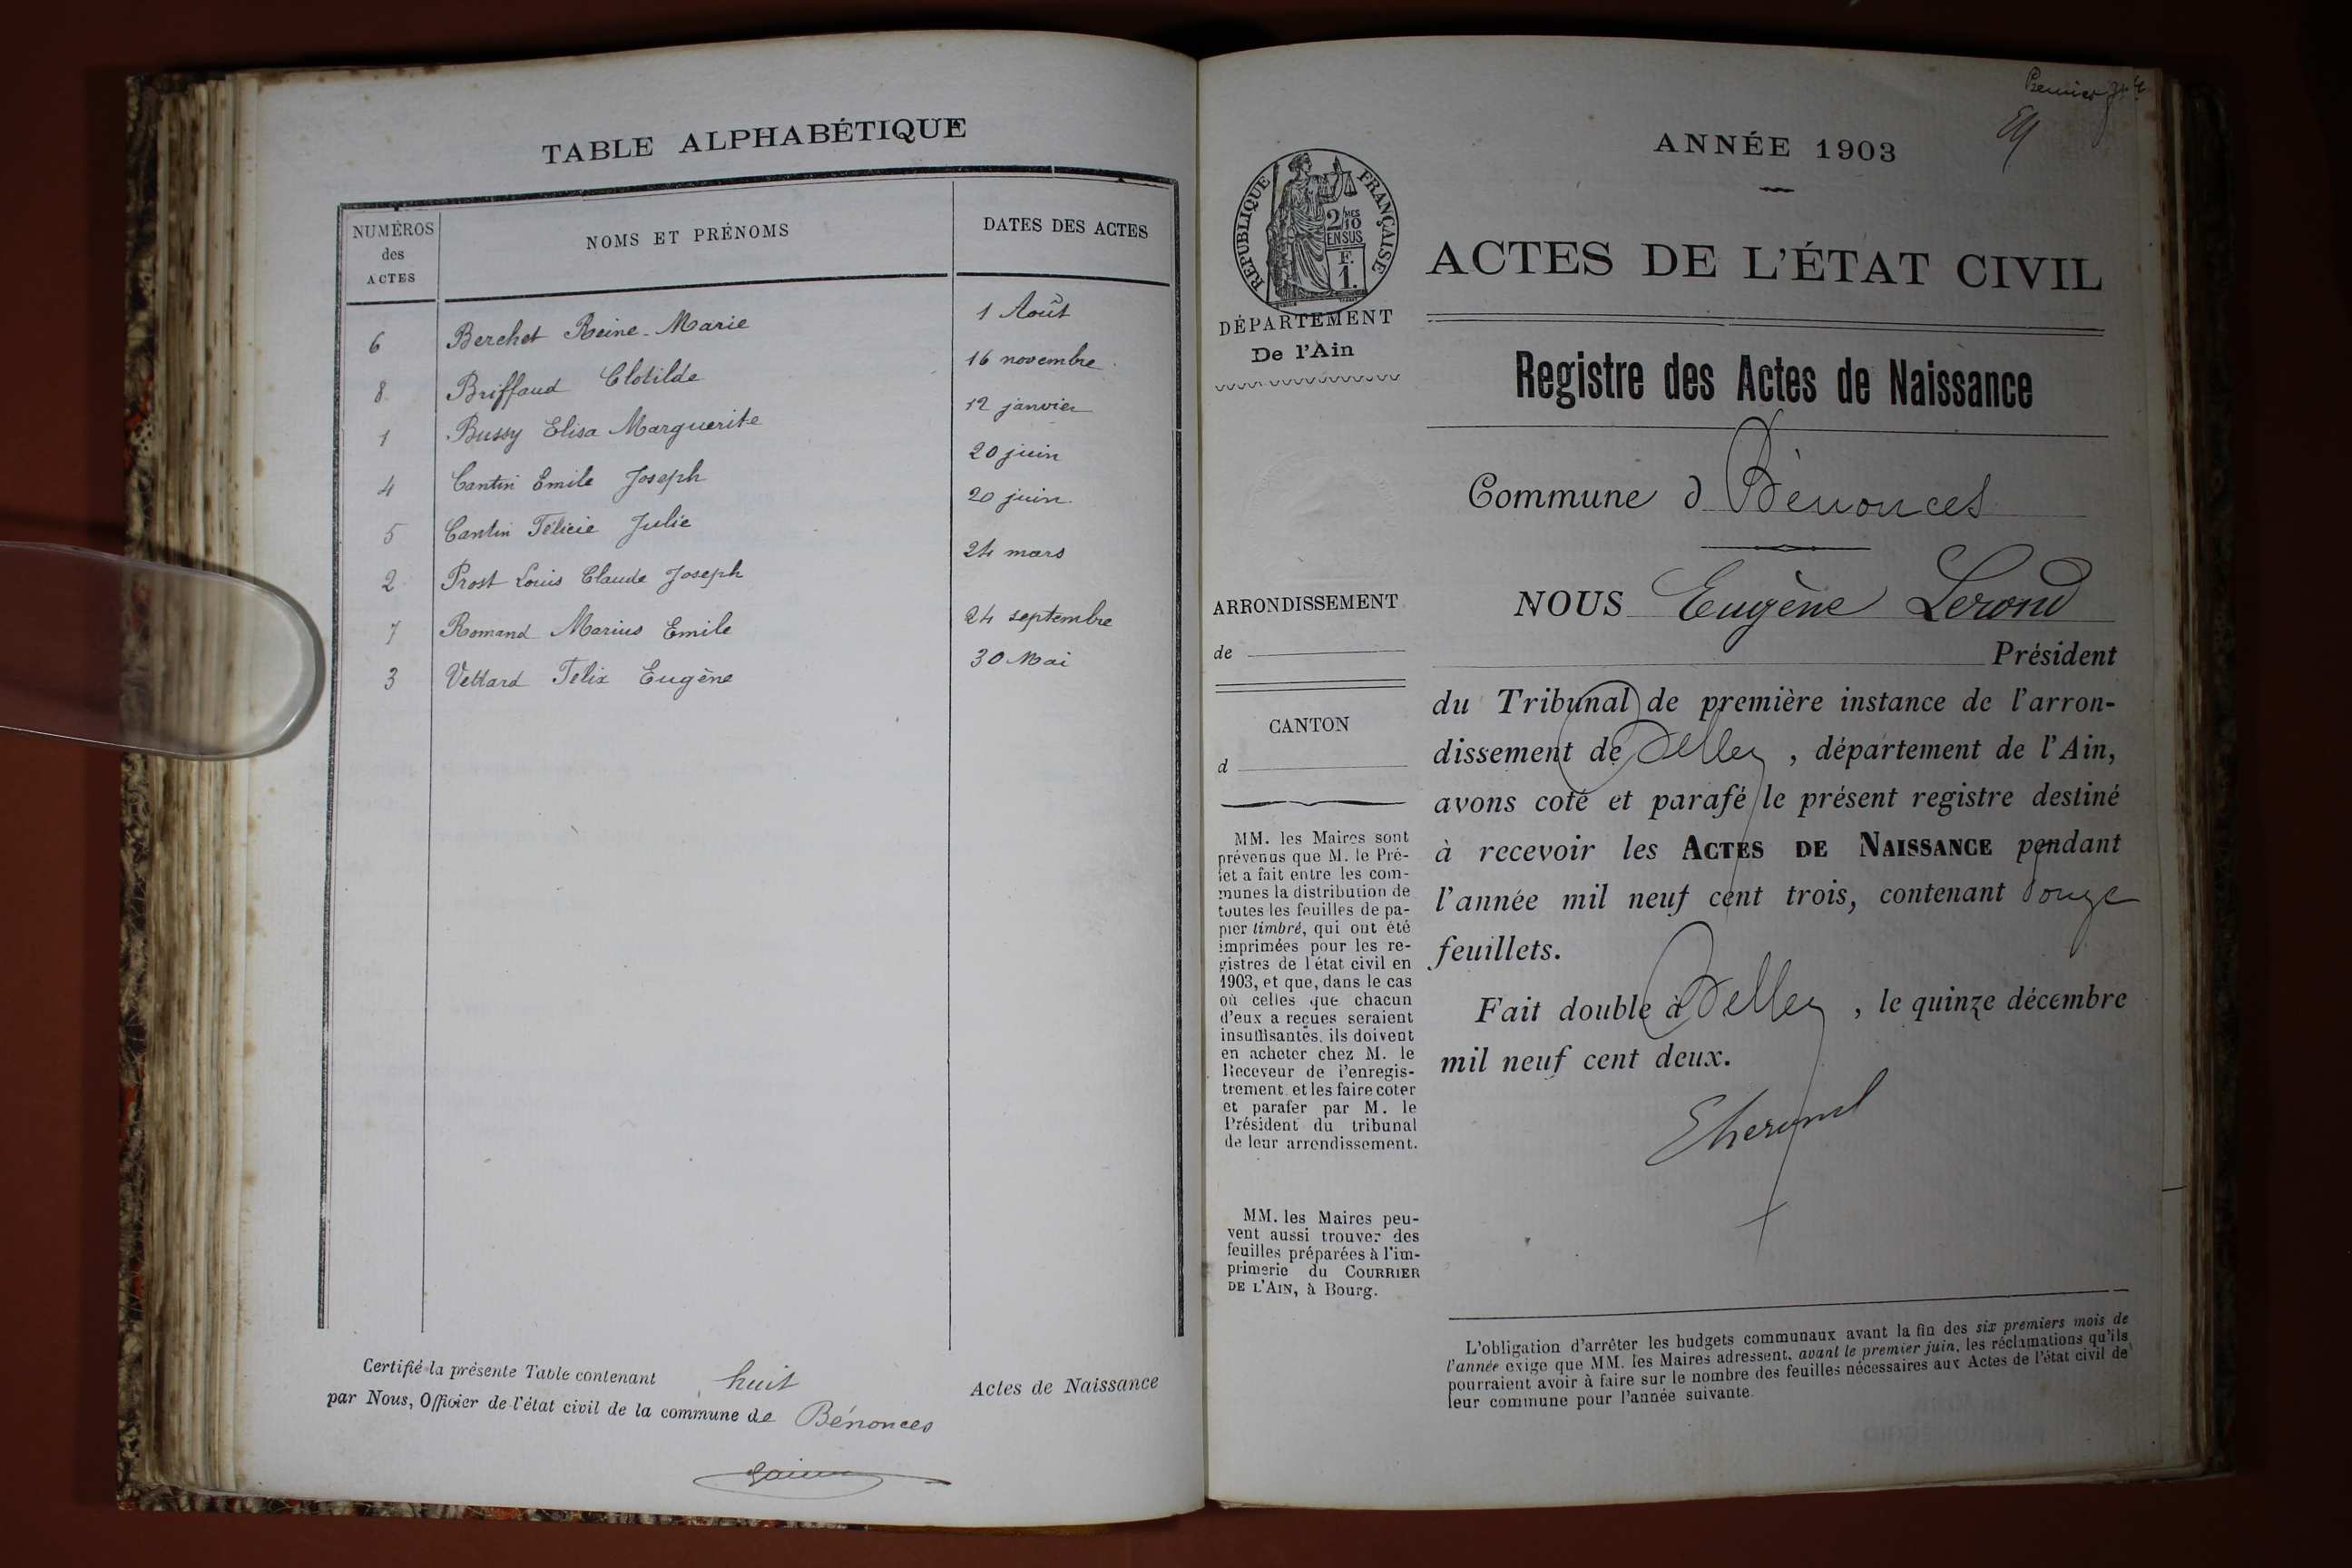 TABLE ALPHABÉTIQUE
NUMÉROS
des
ACTES
NOMS ET PRÉNOMS
DATES DES ACTES
6 Berchet Reine-Marie 1 Août
8 Briffaud Clotilde 16 novembre
1 Bussy Elisa Marguerite 12 janvier
4 Cantin Emile Joseph 20 juin
5 Cantin Félicie Julie 20 juin
2 Prost Louis Claude Joseph 24 mars
7 Romand Marius Emile 24 septembre
3 Vettard Félix Eugène 30 Mai
Certifié la présente Table contenant huit Actes de Naissance
par Nous, Officier de l'état civil de la commune de Bénonces
Premier
ANNÉE 1903
RÉPUBLIQUE FRANÇAISE
2/10MES
EN SUS
F.
1.
DÉPARTEMENT
De l'Ain
ARRONDISSEMENT
de
CANTON
d
MM. les Maires sont
prévenus que M. le Pré-
fet a fait entre les com-
munes la distribution de
toutes les feuilles de pa-
pier timbré, qui ont été
imprimées pour les re-
gistres de l'état civil en
1903, et que, dans le cas
où celles que chacun
d'eux a reçues seraient
insuffisantes, ils doivent
en acheter chez M. le
Receveur de l'enregis-
trement et les faire coter
et parafer par M. le
Président du tribunal
de leur arrondissement.
MM. les Maires peu-
vent aussi trouver des
feuilles préparées à l'im-
primerie du COURRIER
DE L'AIN, à Bourg.
ACTES DE L'ÉTAT CIVIL
Registre des Actes de Naissance
Commune d Bénonces
NOUS Eugène Lerond
Président
du Tribunal de première instance de l'arron-
dissement de Belley, département de l'Ain,
avons coté et parafé le présent registre destiné
à recevoir les ACTES DE NAISSANCE pendant
l'année mil neuf cent trois, contenant douze
feuillets.
Fait double à Belley, le quinze décembre
mil neuf cent deux.
L'obligation d'arrêter les budgets communaux avant la fin des six premiers mois de
l'année exige que MM. les Maires adressent, avant le premier juin, les réclamations qu'ils
pourraient avoir à faire sur le nombre des feuilles nécessaires aux Actes de l'état civil de
leur commune pour l'année suivante.